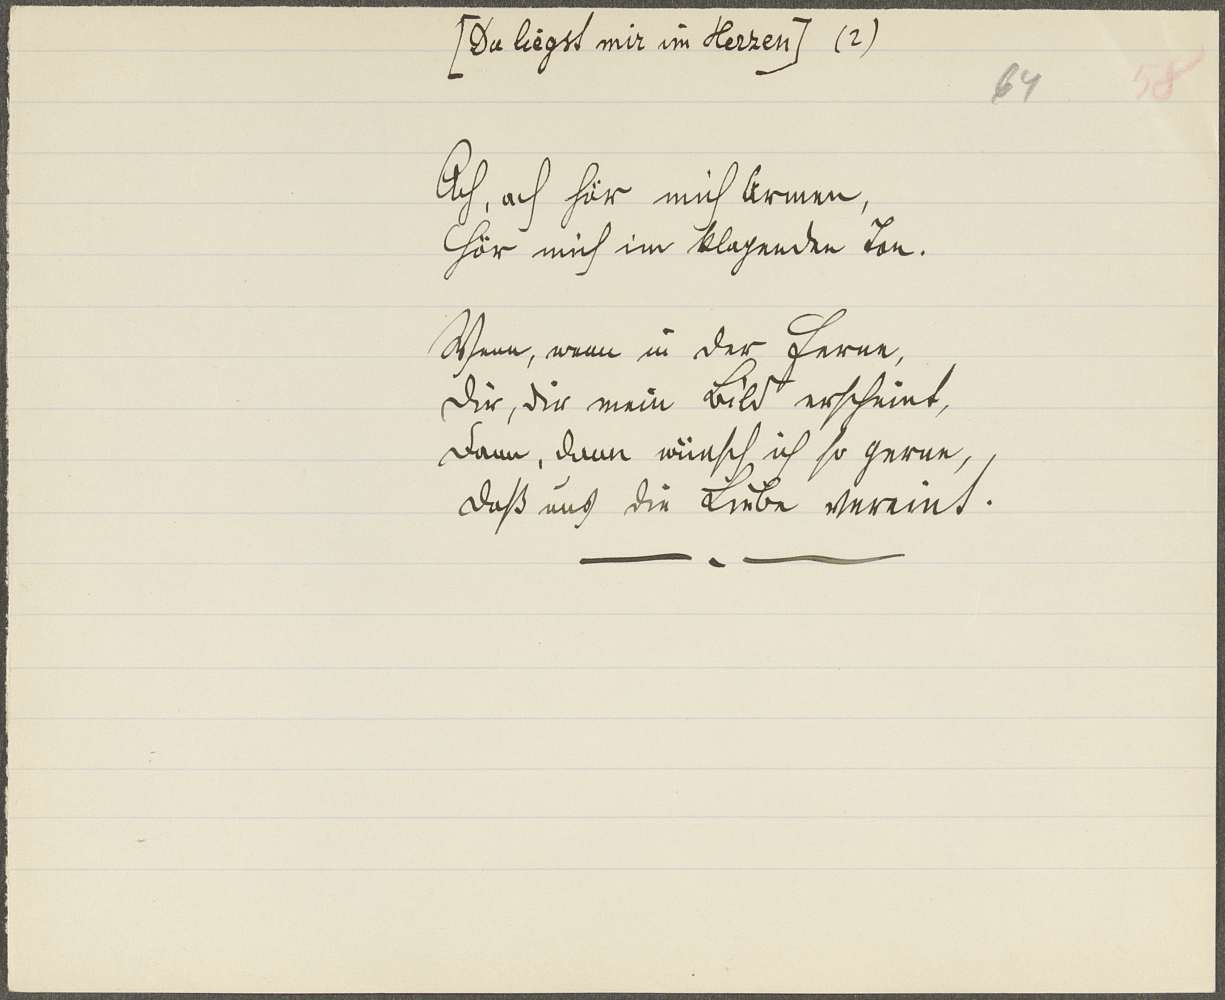 [Du liegst mir im Herzen] (2)
64 58
Ach, ach hör mich Armen,
Hör mich im klagenden Ton.
Wenn, wenn in der Ferne,
Dir, dir mein Bild erscheint,
Dann, dann wünsch ich so gerne,
Daß uns die Liebe vereint.